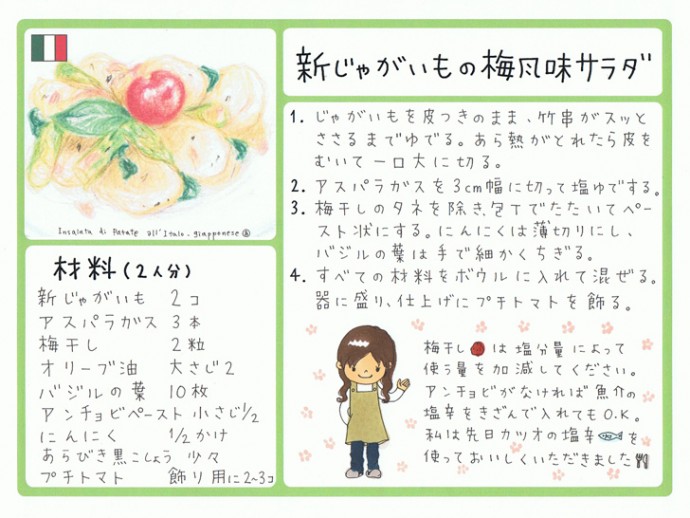 新じゃがいもの梅風味サラダ
Insalata di Patate all'Italo-giapponese
材料(2人分)
新じゃがいも 2コ
アスパラガス 3本
梅干し 2粒
オリーブ油 大さじ2
バジルの葉 10枚
アンチョビペースト 小さじ1/2
にんにく 1/2かけ
あらびき黒こしょう 少々
プチトマト 飾り用に2~3コ
1. じゃがいもを皮つきのまま、竹串がスッと
ささるまでゆでる。あら熱がとれたら皮を
むいて一口大に切る。
2. アスパラガスを3cm幅に切って塩ゆでする。
3. 梅干しのタネを除き、包丁でたたいてペー
スト状にする。にんにくは薄切りにし、
バジルの葉は手で細かくちぎる。
4. すべての材料をボウルに入れて混ぜる。
器に盛り、仕上げにプチトマトを飾る。
梅干しは塩分量によって
使う量を加減してください。
アンチョビがなければ魚介の
塩辛をきざんで入れてもO.K.
私は先日カツオの塩辛を
使っておいしくいただきました